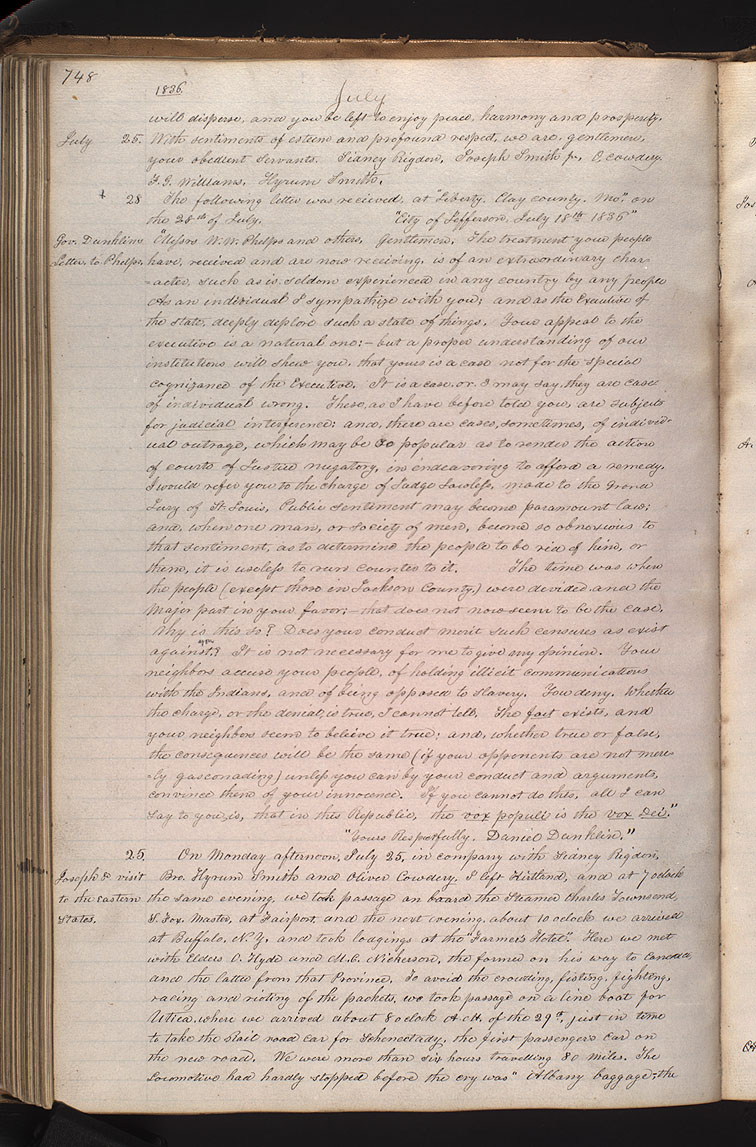 748
1836
July
will disperse, and you be left to enjoy peace, harmony and prosperity.
July 25. With sentiments of esteem and profound respect, we are, gentlemen,
your obedient servants. Sidney Rigdon, Joseph Smith jr, O. Cowdery,
F. G. Williams, Hyrum Smith.
28 The following letter was received, at "Liberty, Clay county, Mo." on
the 28th of July. "City of Jefferson, July 18th 1836"
Gov. Dunklins "Messrs W. W. Phelps and others, Gentlemen, The treatment your people
Letter to Phelps. have, received and are now receiving, is of an extraordinary char-
-acter, such as is seldom experienced in any country by any people
As an individual I sympathize with you; and as the Executive of
the State, deeply deplore such a state of things. Your appeal to the
executive is a natural one:— but a proper understanding of our
institutions will shew you, that yours is a case not for the special
cognizance of the Executive. It is a case, or I may say, they are cases
of individual wrong. These, as I have before told you, are subjects
for judicial interference; and, there are cases, sometimes, of individ-
ual outrage, which may be so popular as to render the action
of courts of Justice nugatory, in endeavoring to afford a remedy.
I would refer you to the charge of Judge Lawless, made to the Grand
Jury of St. Louis, Public sentiment may become paramount law;
and, when one man, or society of men, become so obnoxious to
that sentiment, as to determine the people to be rid of him, or
them, it is useless to run counter to it. The time was when
the people (except those in Jackson County,) were divided and the
Major part in your favor;— that does not now seem to be the case.
Why is this so? Does your conduct merit such censures as exist
against you? It is not necessary for me to give my opinion. Your
neighbors accuse your people, of holding illicit communications
with the Indians, and of being opposed to slavery. You deny. Whether
the charge, or the denial, is true, I cannot tell. The fact exists, and
your neighbors seem to believe it true; and, whether true or false,
the consequences will be the same (if your opponents are not mere-
-ly gasconading) unless you can by your conduct and arguments,
convince them of your innocence. If you cannot do this, all I can
say to you, is, that in this Republic, the vox populi is the vox Dei."
"Yours Respectfully. Daniel Dunklin."
25. On Monday afternoon, July 25, in company with Sidney Rigdon,
Joseph & visit Bro. Hyrum Smith and Oliver Cowdery, I left Kirtland, and at 7 oclock
to the eastern the same evening, we took passage on board the Steamer Charles Townsend,
States. S. Fox, Master, at Fairport, and the next evening, about 10 oclock we arrived
at Buffalo, N. Y. and took lodgings at the "Farmer's Hotel". Here we met
with Elders O. Hyde and M. C. Nickerson, the former on his way to Canada,
and the latter from that Province. To avoid the crowding, fisting, fighting,
racing and rioting of the packets, we took passage on a line boat for
Utica, where we arrived about 8 oclock A. M. of the 29th, just in time
to take the Rail road car for Schenectady, the first passenger car on
the new road. We were more than six hours travelling 80 miles. The
Locomotive had hardly stopped before the cry was "Albany baggage, the